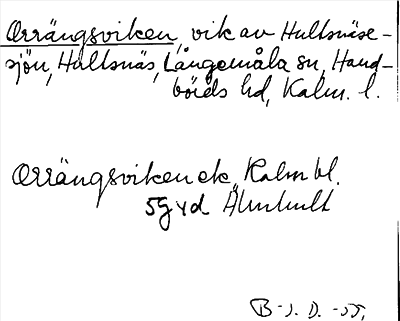 Orrängsviken, vik av Hultsnäse-
sjön, Hultsnäs, Långemåla sn, Hand-
börds hd, Kalm. l.
Orrängsviken ek. Kalm bl.
5g vd Älmhult
B-s. D. -55.